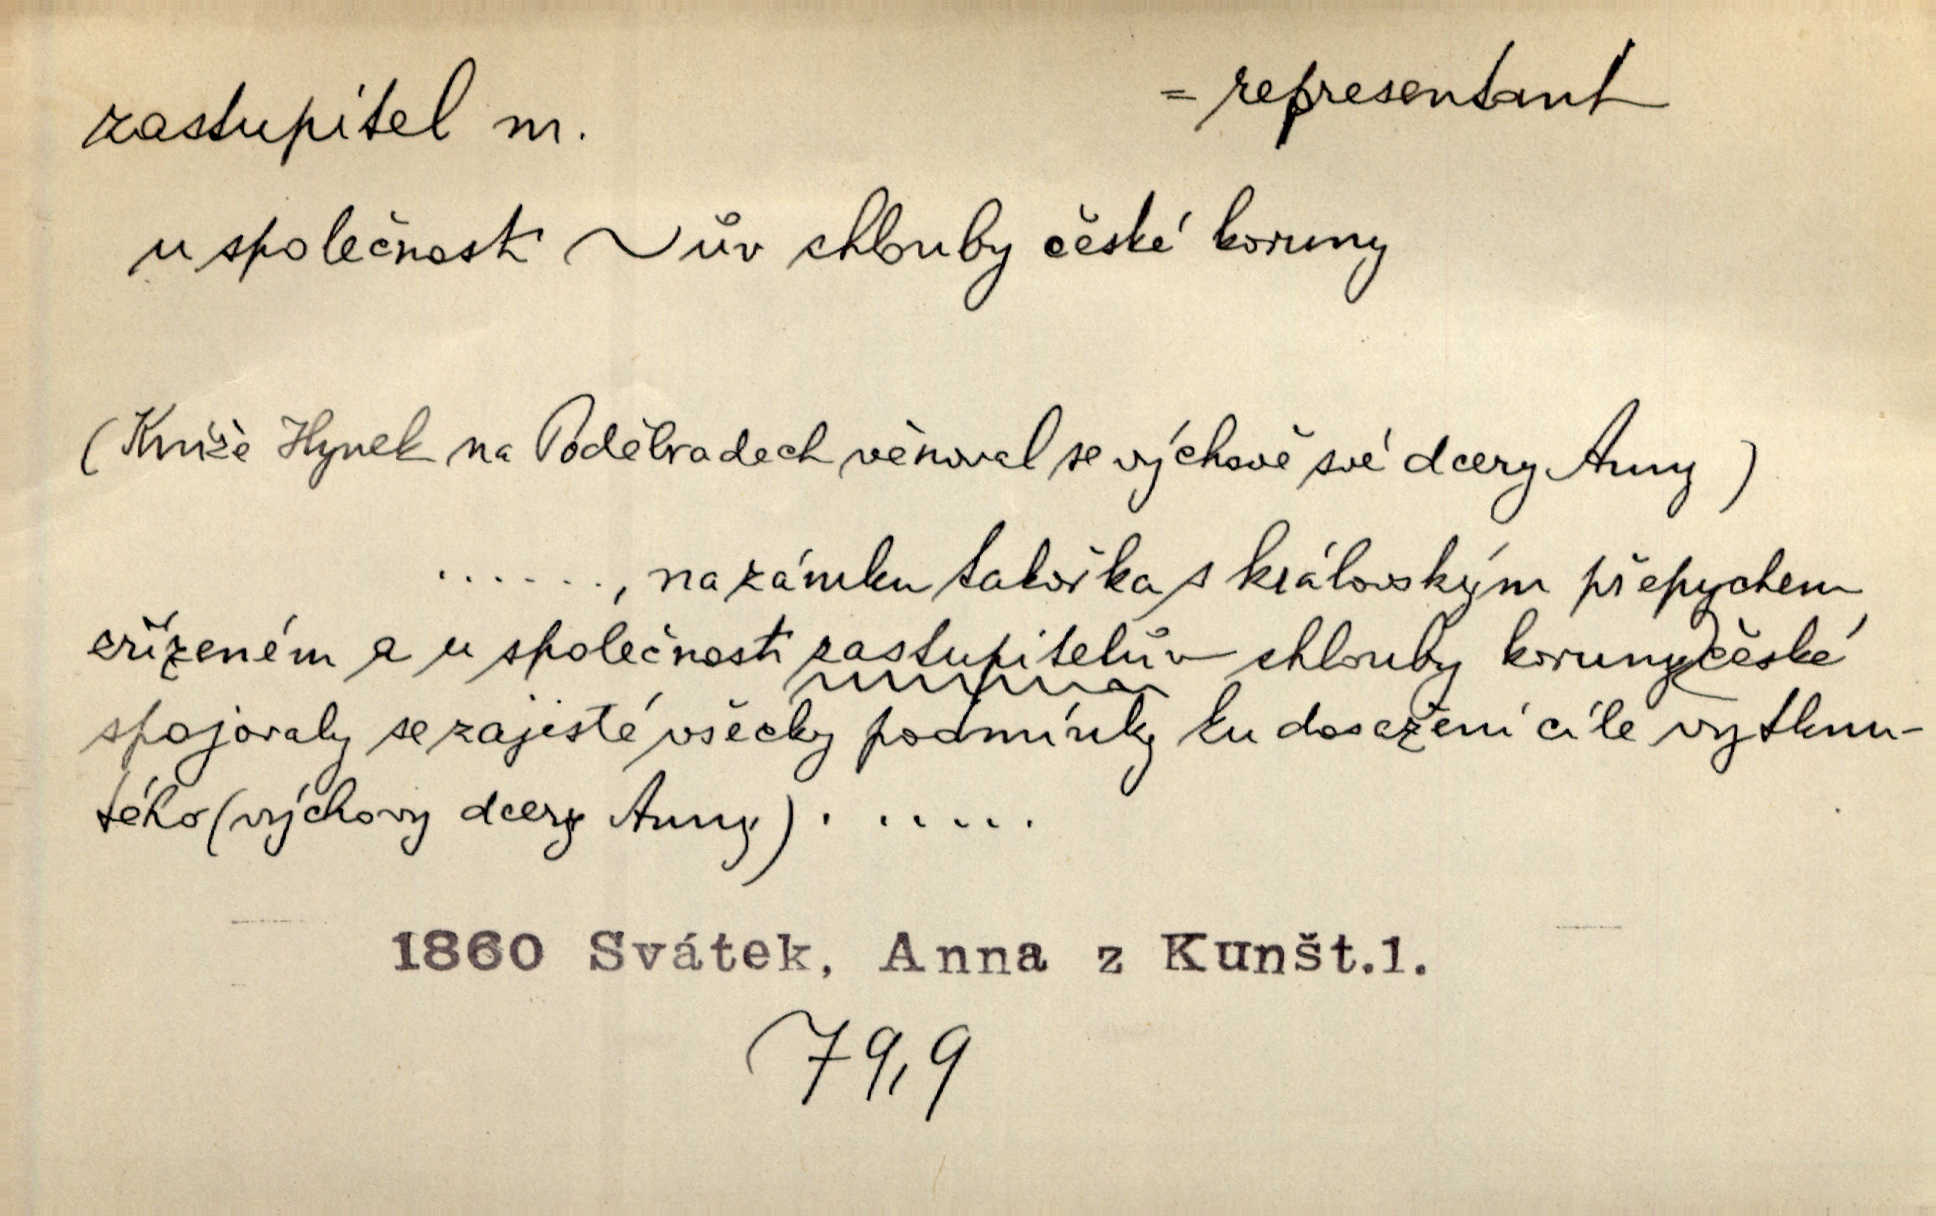 zastupitel m.
= representant
u společnosti ~ ův chlouby české koruny
(Kníže Hynek na Poděbradech věnoval se výchově své dcery Anny)
......, na zámku takořka s královským přepychem
zřízeném a u společnosti zastupitelův chlouby koruny české
spojovaly se zajisté všecky podmínky ku dosažení cíle vytknu-
tého (výchovy dcery Anny). .....
1860 Svátek, Anna z Kunšt.1.
79,9